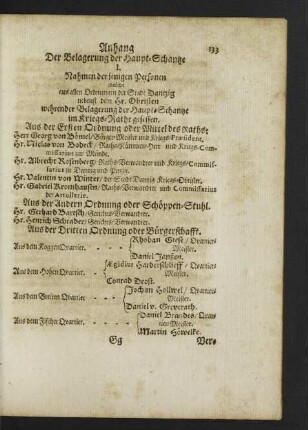 Anhang 133
Der Belagerung der Haupt-Schantze
I.
Nahmen der jenigen Personen
welche
aus allen Ordnungen der Stadt Dantzig
nebenst dem Hr. Obristen
wehrender Belagerung der Haupt-Schantze
im Kriegs-Raht gesessen.
Aus der Ersten Ordnung oder Mittel des Rahts:
Herr Georg von Bömel/ Bürger-Meister und Kriegs-Præsident.
Hr. Niclas von Bodeck/
Hr. Albrecht Rosenberg/ Rahts-Verwandter und Kriegs-Commis-
Hr. Valentin von Winter/ der Stadt Dantzig Kriegs-Obrister.
Hr. Gabriel Krumhausen/ Rahts-Verwandter und Commissarius
der Artillerie.
Aus der Andern Ordnung oder Schöppen-Stuhl.
Hr. Gerhard Bartsch/ Gerichts-Verwandter.
Hr. Henrich Schrader/ Gerichts-Verwandter.
Aus der Dritten Ordnung oder Bürgerschafft.
Aus dem Koggen Qvartier. Giese/ Qvartier-
Meister.
Daniel Janßon.
Aus dem Hohen Qvartier. Ægidius Qvartier-
Meister.
Conrad Drost.
Aus dem Breiten Qvartier Jochim Hollwel/ Qvartier-
Meister.
Daniel v.
Aus dem Fischer Qvartier. Daniel Brandes/ Qvar-
tier-Meister.
Martin Höwelke.
Gg Ver-